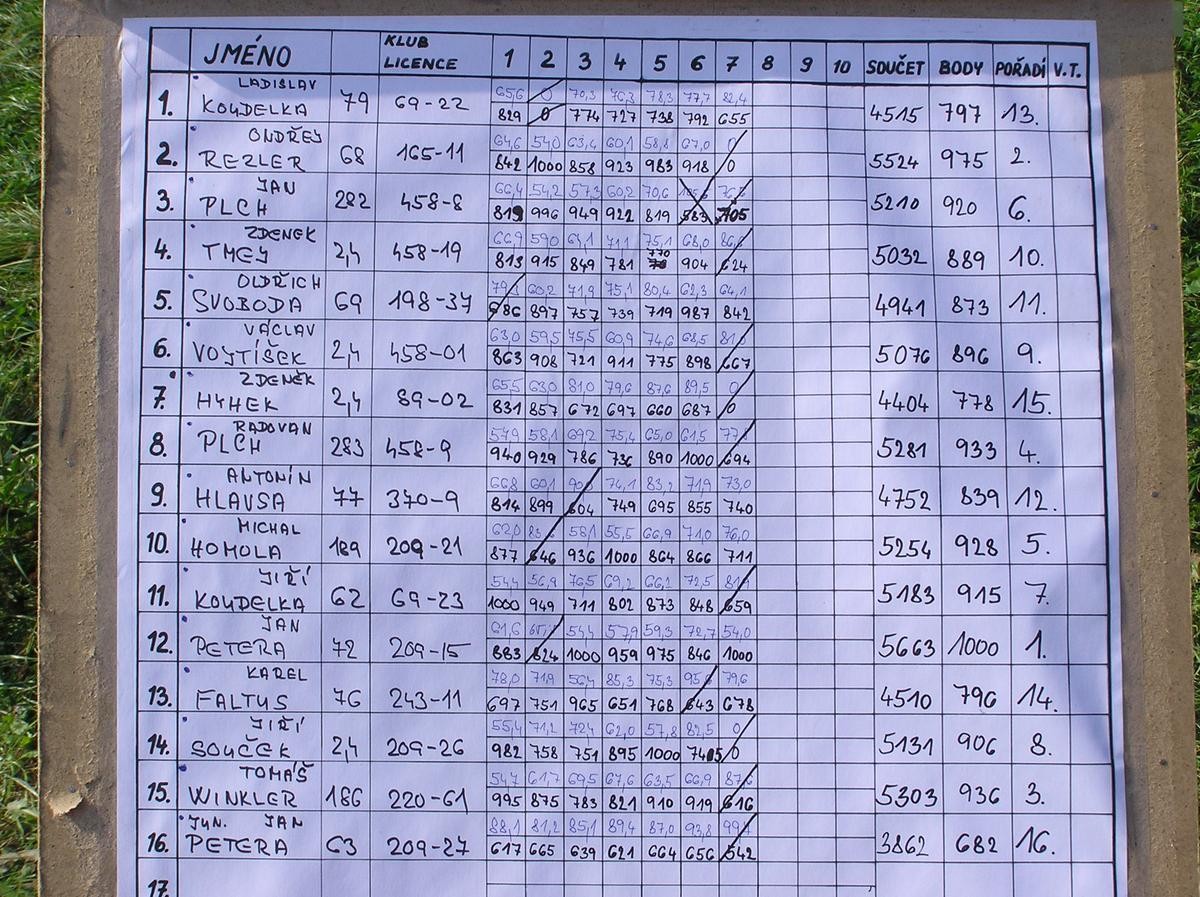 JMÉNO KLUB LICENCE 1 2 3 4 5 6 7 8 9 10 SOUČET BODY POŘADÍ V.T.
LADISLAV 65,6 0 70,3 76,3 78,3 77,7 82,4
1. KOUDELKA 79 69-22 829 0 774 727 738 792 655 4515 797 13.
ONDŘEJ 64,6 54,0 63,4 60,1 58,8 67,0 0
2. REZLER 68 165-11 842 1000 858 923 983 918 0 5524 975 2.
JAN 66,4 54,2 57,3 60,2 70,6
3. PLCH 282 458-8 819 996 949 922 819 583 705 5210 920 6.
ZDENEK 66,9 59,0 64,1 71,1 75,1 68,0 86,6
4. TMEJ 2,4 458-19 813 915 849 781 770 904 624 5032 889 10.
OLDŘICH 79,3 60,2 71,9 75,1 80,4 62,3 64,1
5. SVOBODA 69 198-37 686 897 757 739 719 987 842 4941 873 11.
VÁCLAV 63,0 59,5 75,5 60,9 74,6 68,5
6. VOJTÍŠEK 2,4 458-01 863 908 721 911 775 898 667 5076 896 9.
ZDENĚK 65,5 63,0 81,0 79,6 87,6 89,5 0
7. HÝHEK 2,4 89-02 831 857 672 697 660 687 0 4404 778 15.
RADOVAN 57,9 58,1 69,2 75,4 65,0 61,5
8. PLCH 283 458-9 940 929 786 736 890 1000 694 5281 933 4.
ANTONÍN 66,8 60,1 74,1 83,2 71,9 73,0
9. HLAVSA 77 370-9 814 899 604 749 695 855 740 4752 839 12.
MICHAL 62,0 58,1 55,5 66,9 71,0 76,0
10. HOMOLA 189 209-21 877 646 936 1000 864 866 711 5254 928 5.
JIŘÍ 54,4 56,9 76,5 69,2 66,2 72,5
11. KOUDELKA 62 69-23 1000 949 711 802 873 848 659 5183 915 7.
JAN 61,6 54,4 57,9 59,3 72,7 54,0
12. PETERA 72 209-15 883 824 1000 959 975 846 1000 5663 1000 1.
KAREL 78,0 71,9 56,4 85,3 75,3 79,6
13. FALTUS 76 243-11 697 751 965 651 768 643 678 4510 796 14.
JIŘÍ 55,4 71,2 72,4 62,0 57,8 82,5 0
14. SOUČEK 2,4 209-26 982 758 751 895 1000 745 0 5131 906 8.
TOMÁŠ 54,7 61,7 69,5 67,6 63,5 66,9 87,6
15. WINKLER 186 220-61 995 875 783 821 910 919 616 5303 936 3.
JUN. JAN 88,1 81,2 85,1 89,4 87,0 93,8
16. PETERA 63 209-27 617 665 639 621 664 656 542 3862 682 16.
17.